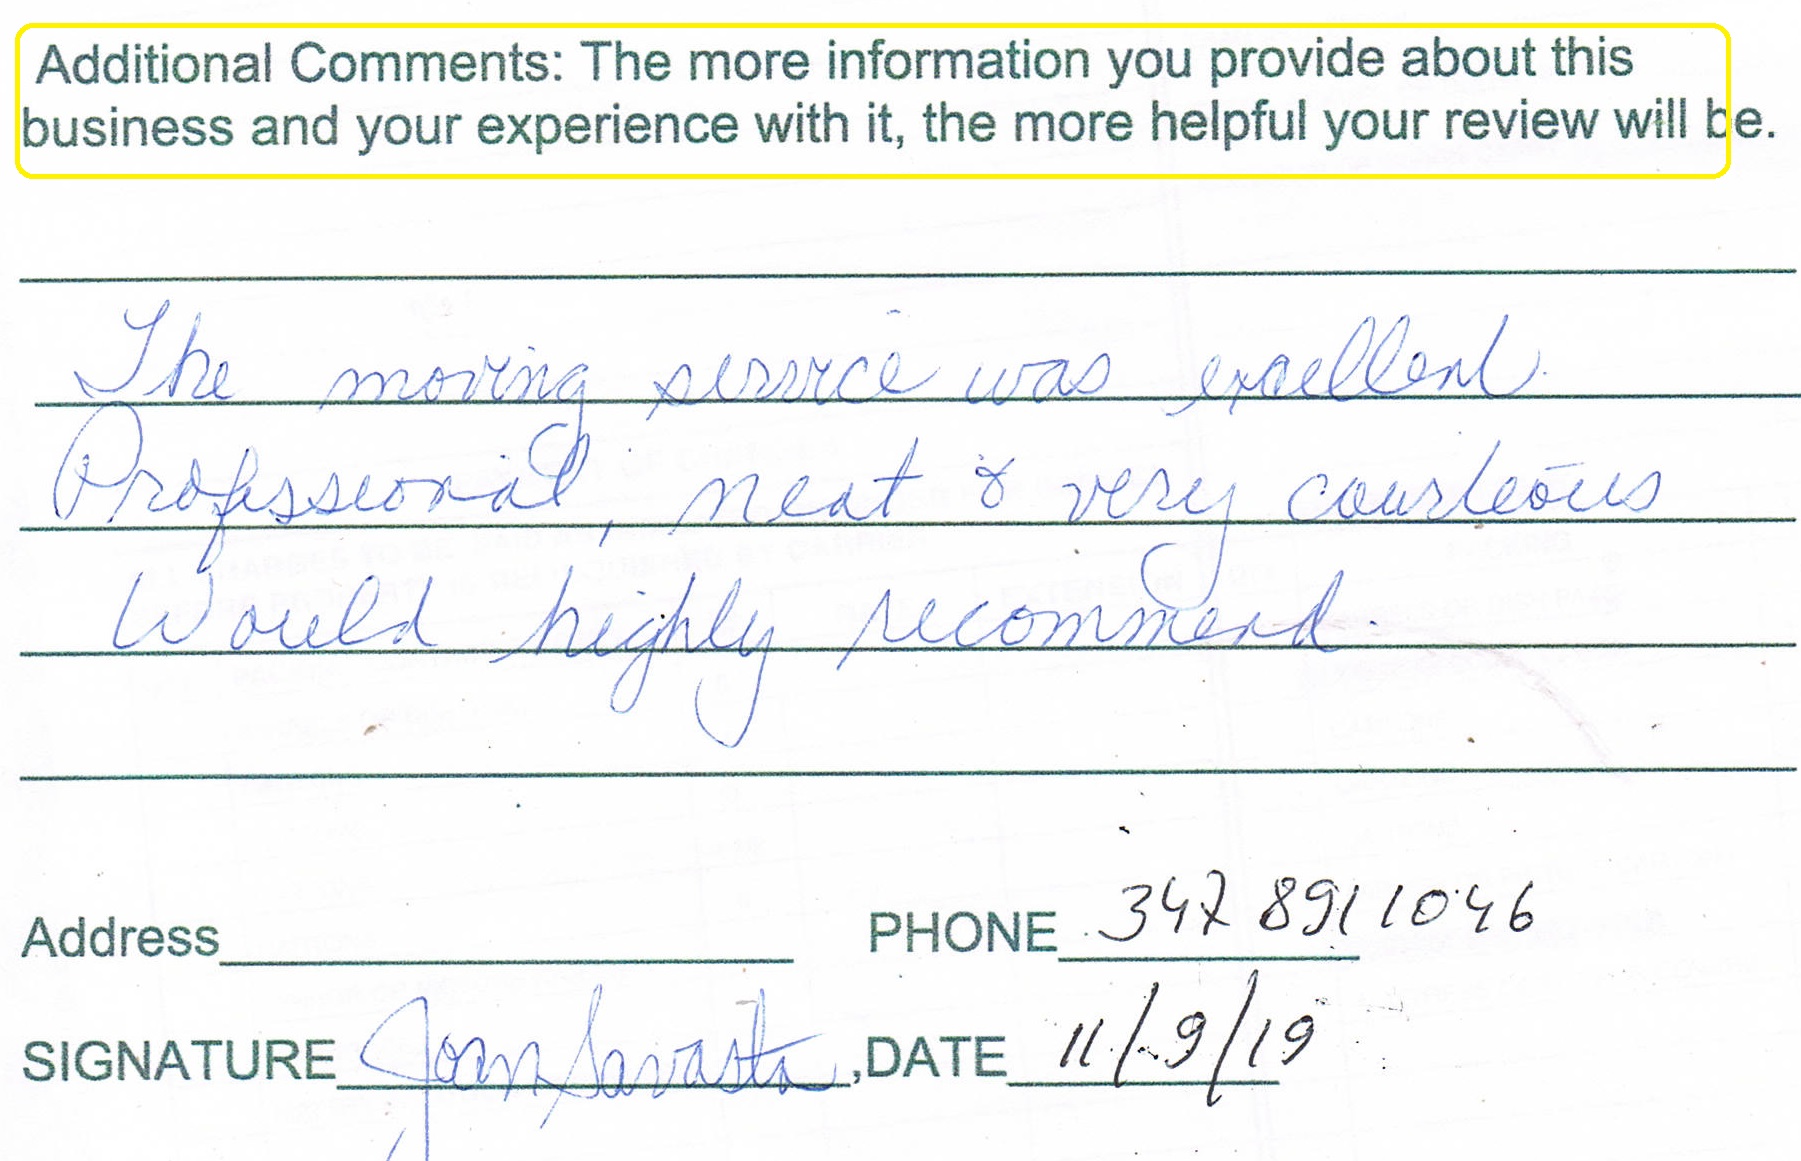 Additional Comments: The more information you provide about this
business and your experience with it, the more helpful your review will be.
The moving service was excellent
Professional, neat & very courteous
Would highly recommend.
Address PHONE 347 891 1046
SIGNATURE Joan Savasta, DATE 11/9/19